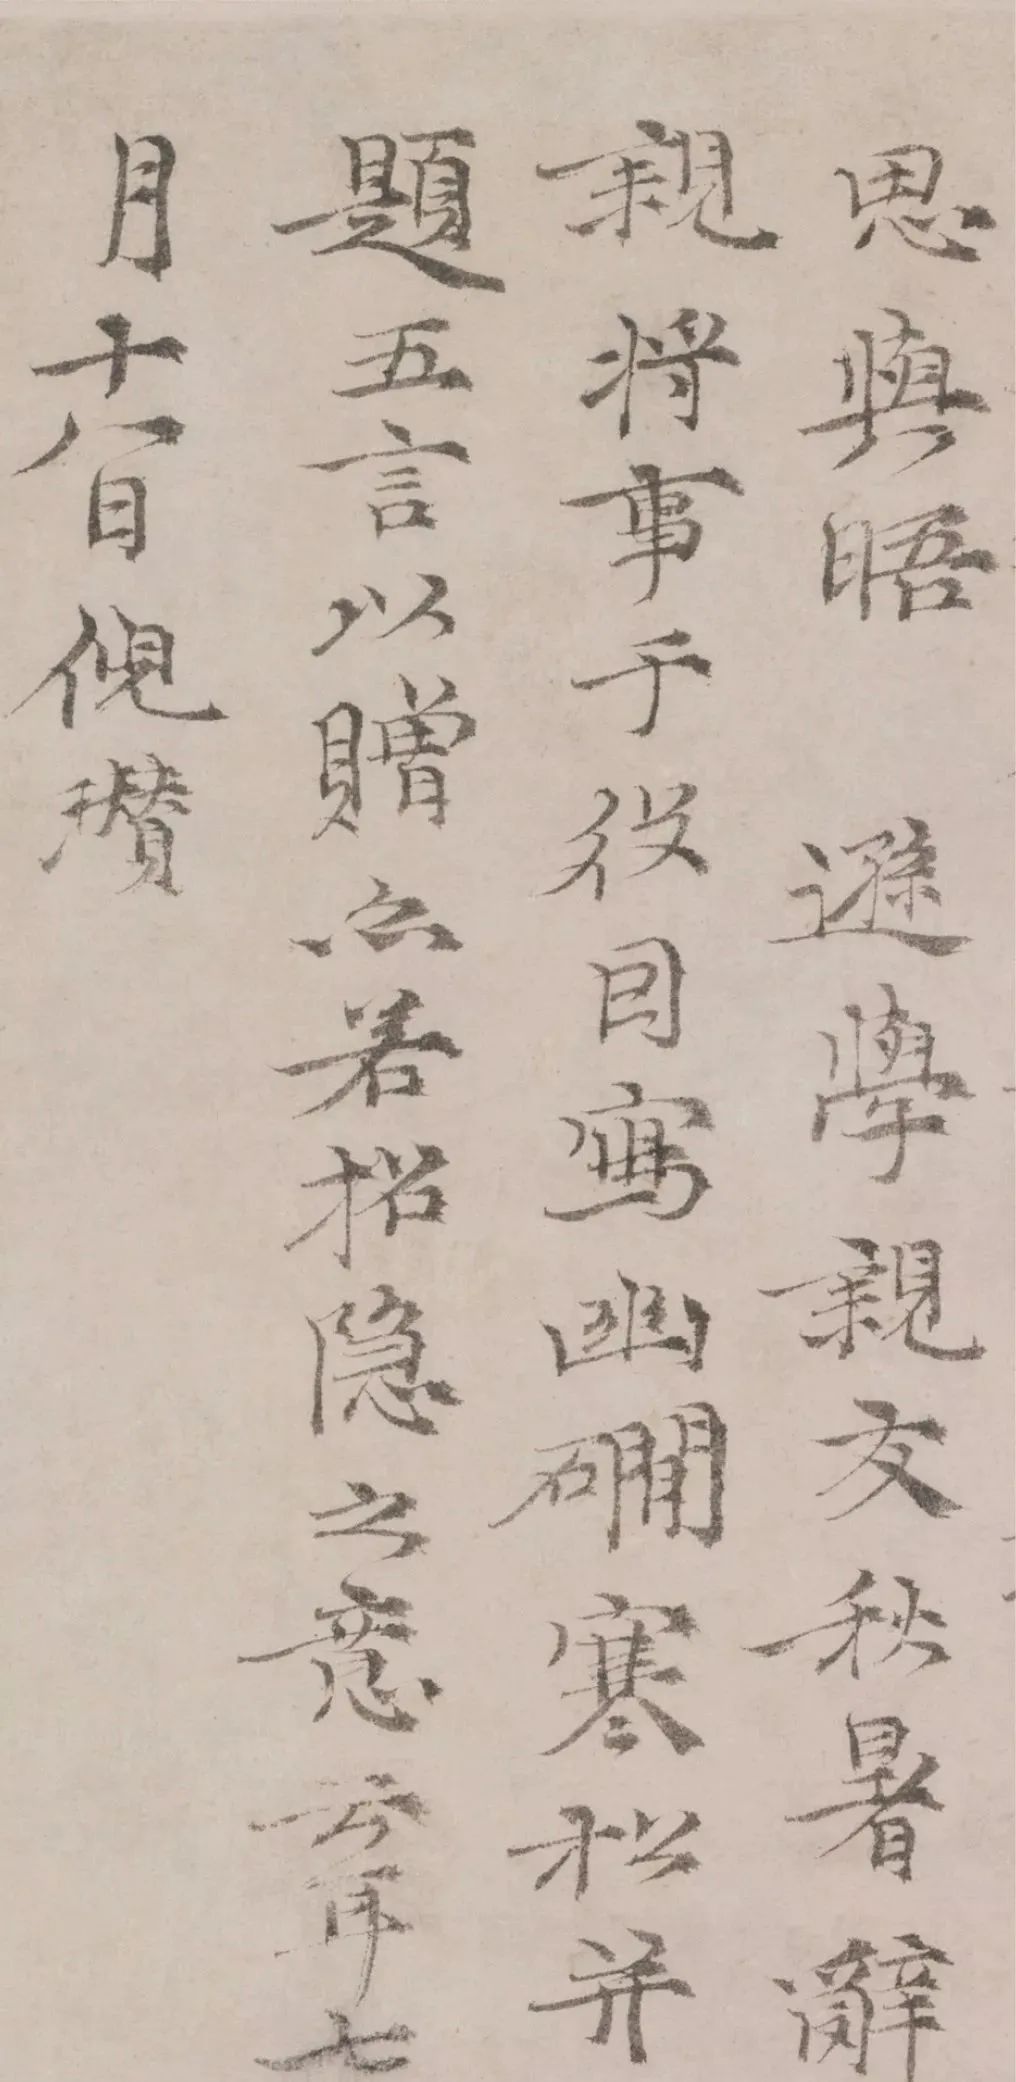 思與晤　遜學親友秋暑辭
親將事于役因寫幽磵寒松并
題五言以贈亦若招隱之意云耳七
月十八日倪瓚